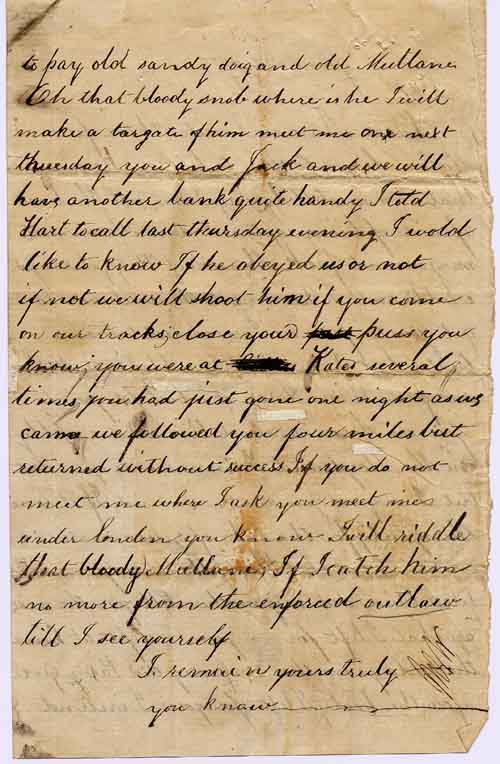 to pay old sandy doig and old Mullane
Oh that bloody snob where is he I will
make a targate of him meet me one next
thuesday you and Jack and we will
have another bank quite handy I told
Hart to call last thursday evening I wold
like to know If he obeyed us or not
if not we will shoot him if you come
on our tracks; close your puss you
know; you were at Kates several
times, you had just gone one night as we
came we followed you four miles but
returned without success If you do not
meet me where I ask you meet me
under london you know I will riddle
that bloody Mullane, If I catch him
no more from the enforced outlaw
till I see yourself
I remain yours truly
you know